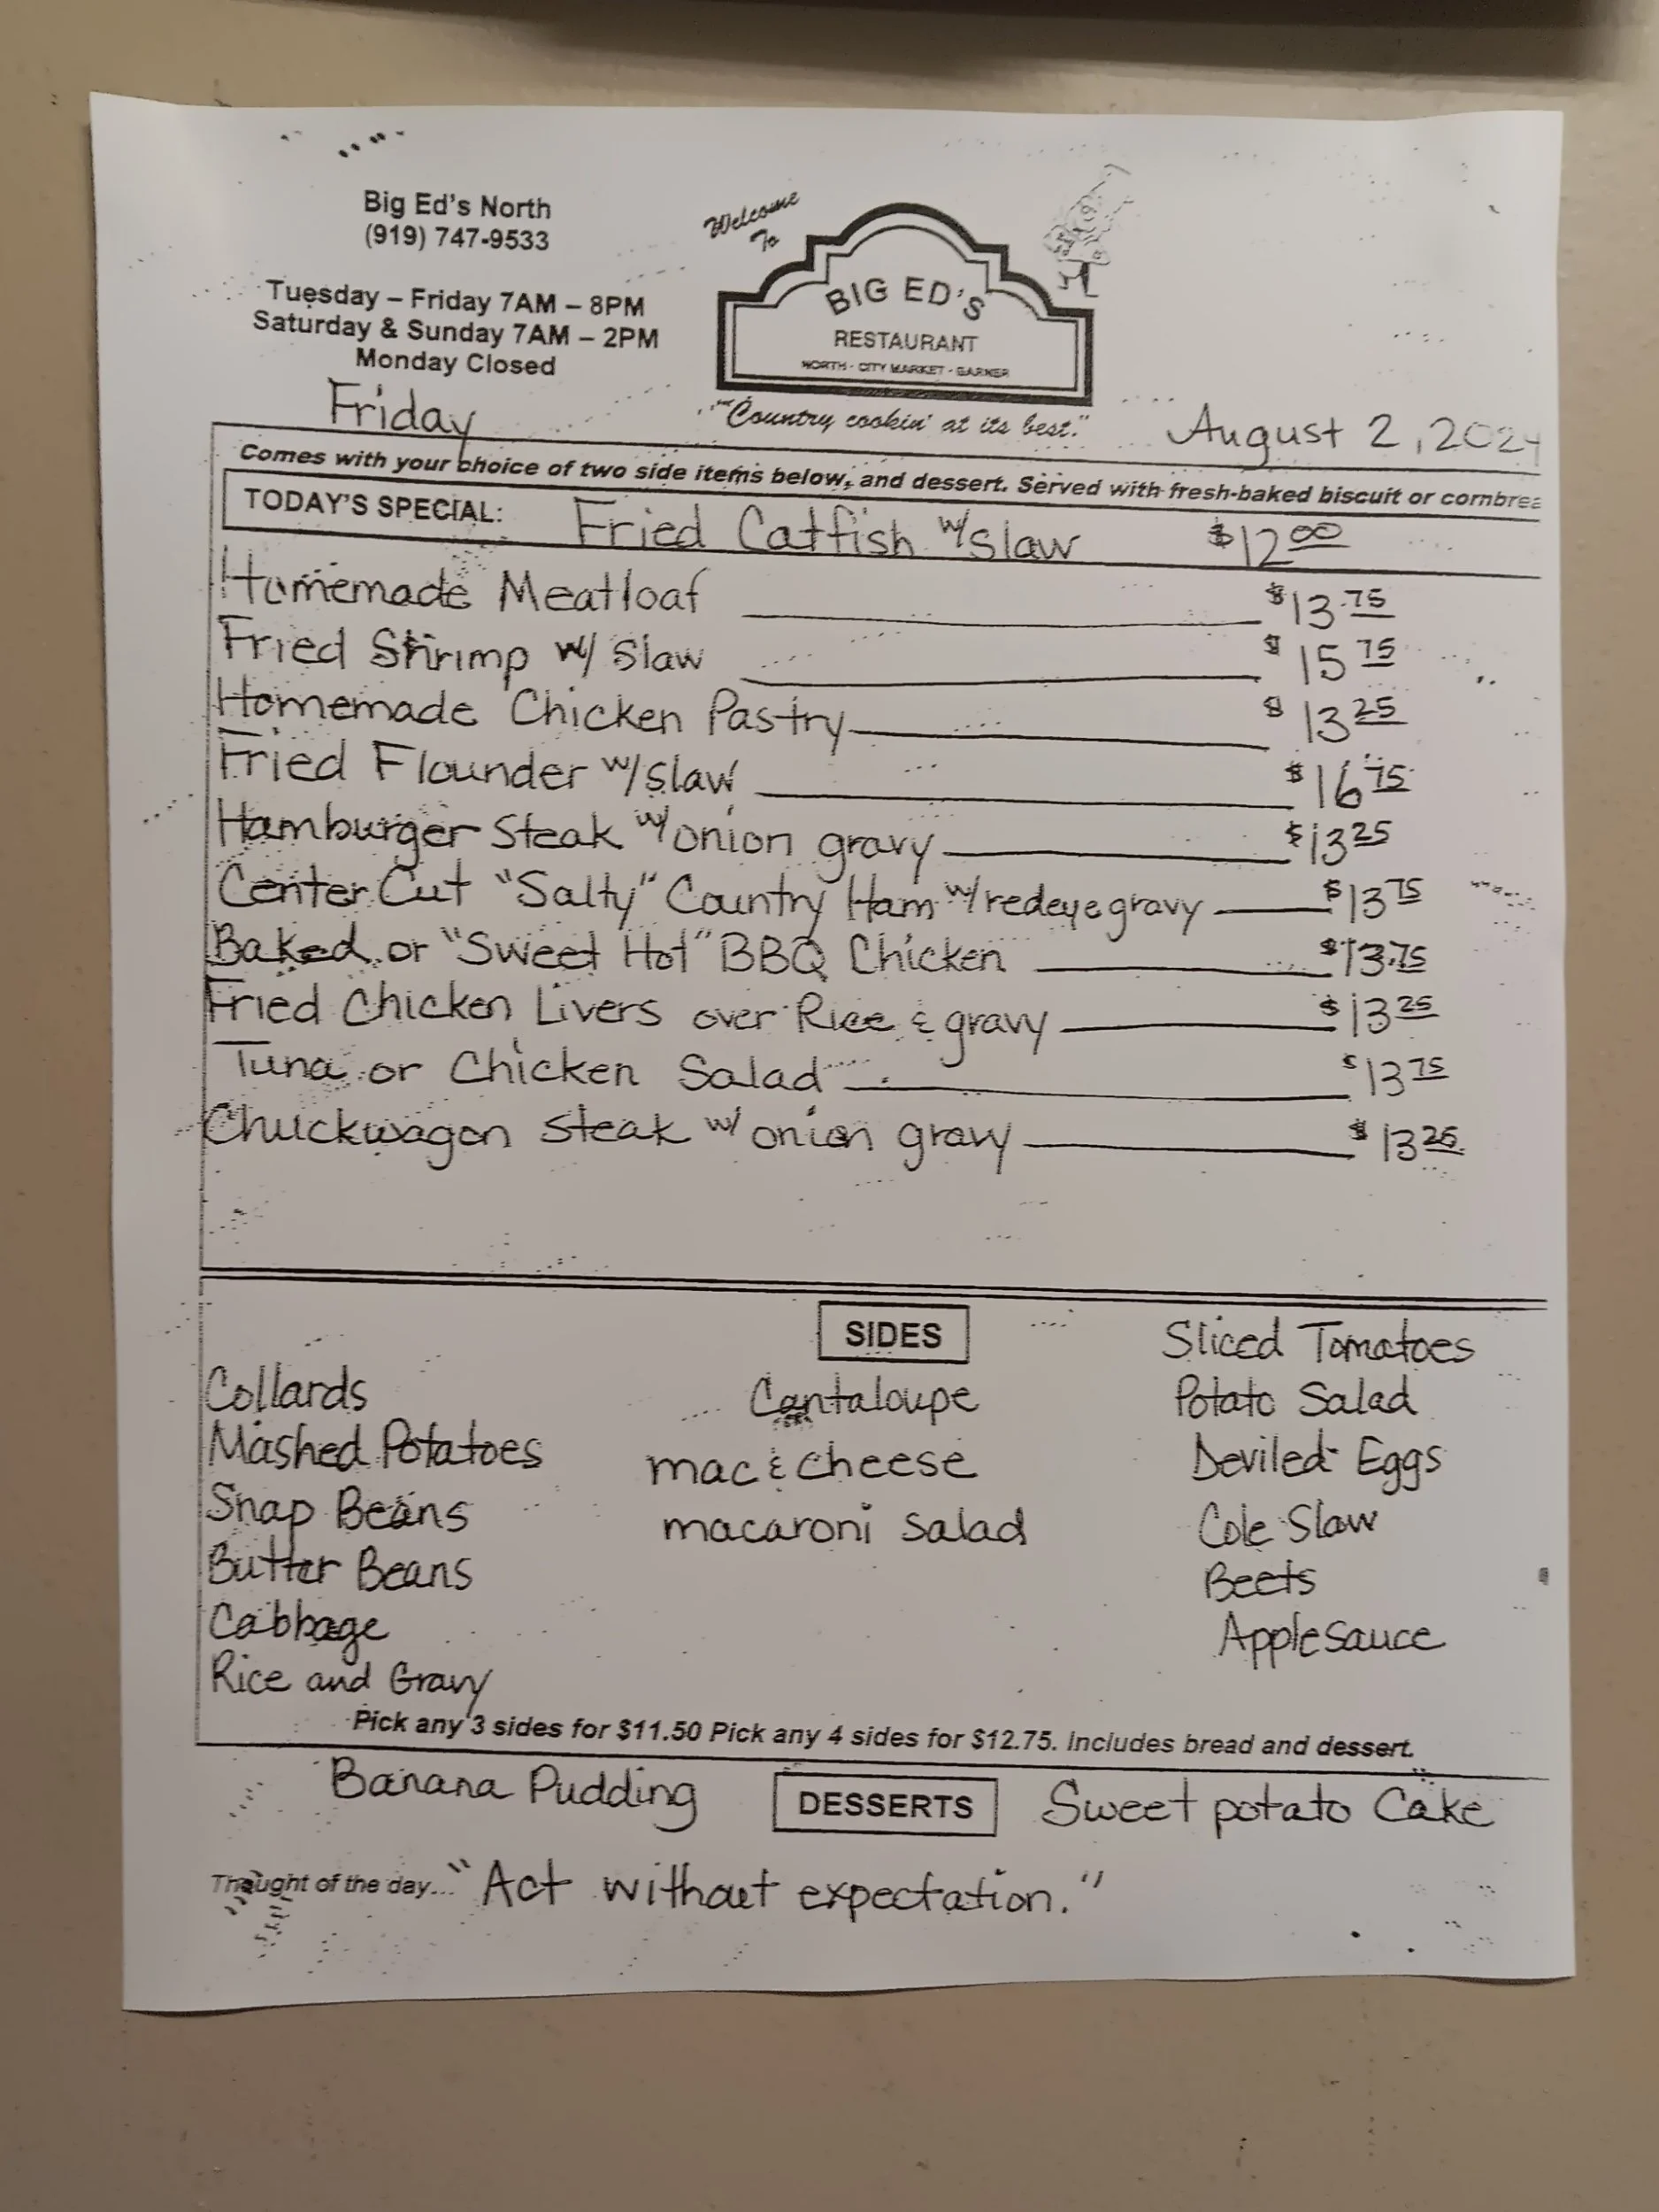 Big Ed's North
(919) 747-9533
Tuesday – Friday 7AM – 8PM
Saturday & Sunday 7AM – 2PM
Monday Closed
Welcome
To
BIG ED'S
RESTAURANT
NORTH - CITY MARKET - GARNER
"Country cookin' at its best."
Friday
August 2, 2024
Comes with your choice of two side items below, and dessert. Served with fresh-baked biscuit or
TODAY'S SPECIAL: Fried Catfish w/slaw $12 00
Homemade Meatloaf $13.75
Fried Shrimp w/ Slaw $15 75
Homemade Chicken Pastry $13 25
Fried Flounder w/slaw $16 75
Hamburger Steak w/onion gravy $13 25
Center Cut "Salty" Country Ham w/redeye gravy $13 75
Baked or "Sweet Hot" BBQ Chicken $13.75
Fried Chicken Livers over Rice & gravy $13 25
Tuna or Chicken Salad $13 75
Chuckwagon steak w/ onion gravy $13 25
SIDES
Collards
Mashed Potatoes
Snap Beans
Butter Beans
Cabbage
Rice and Gravy
Cantaloupe
mac & cheese
macaroni salad
Sliced Tomatoes
Potato Salad
Deviled Eggs
Cole Slaw
Beets
Applesauce
Pick any 3 sides for $11.50 Pick any 4 sides for $12.75. Includes bread and dessert.
Banana Pudding
DESSERTS
Sweet potato Cake
Thought of the day... "Act without expectation."